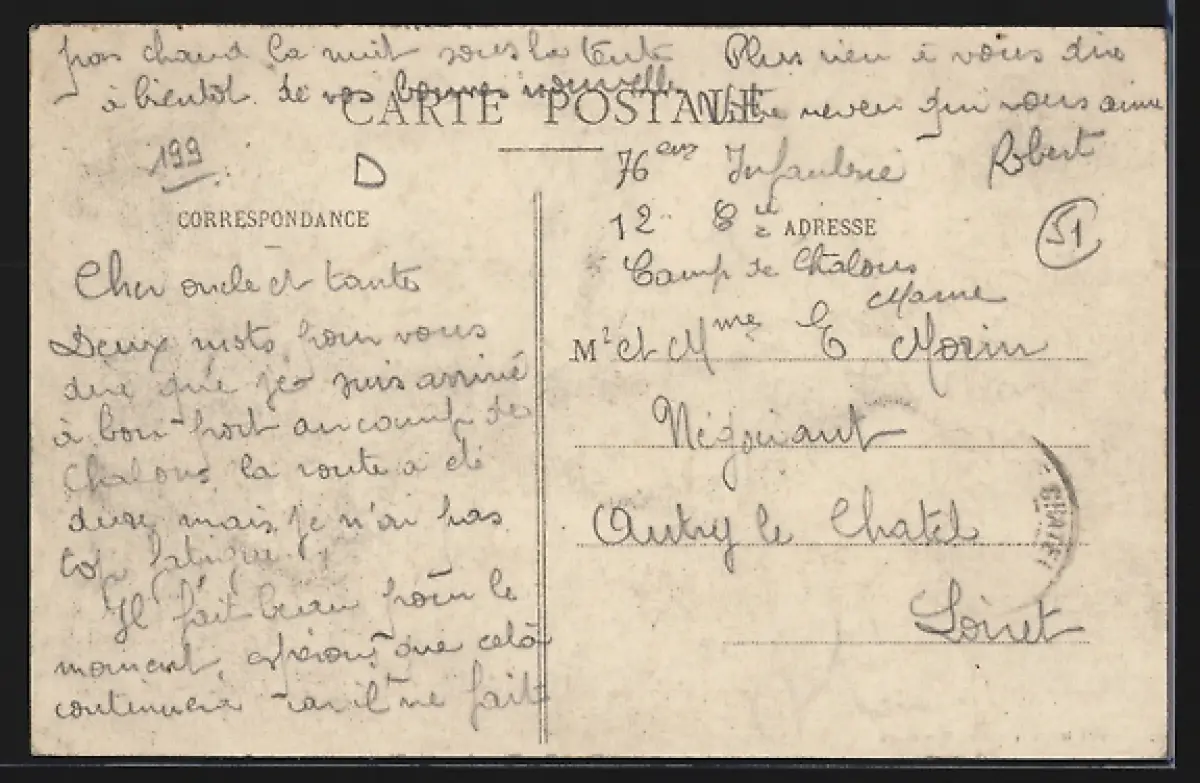 pas chaud la nuit sous la tente Plus rien à vous dire
à bientôt de vos bonnes nouvelles
CARTE POSTALE
Votre neveu qui vous aime
Robert
199
D
76 eme Infanterie
12 Cie
Camp de Chalons
Marne
51
CORRESPONDANCE
Cher oncle et tante
Deux mots pour vous
dire que je suis arrivé
à bon port au camp de
Chalons la route a été
dure mais je n'ai pas
fatigué
Il fait beau pour le
moment, espérons que cela
continuera car il ne fait
ADRESSE
Mr et Mme E Morin
Négociant
Autry le Chatel
Loiret
CHATEL